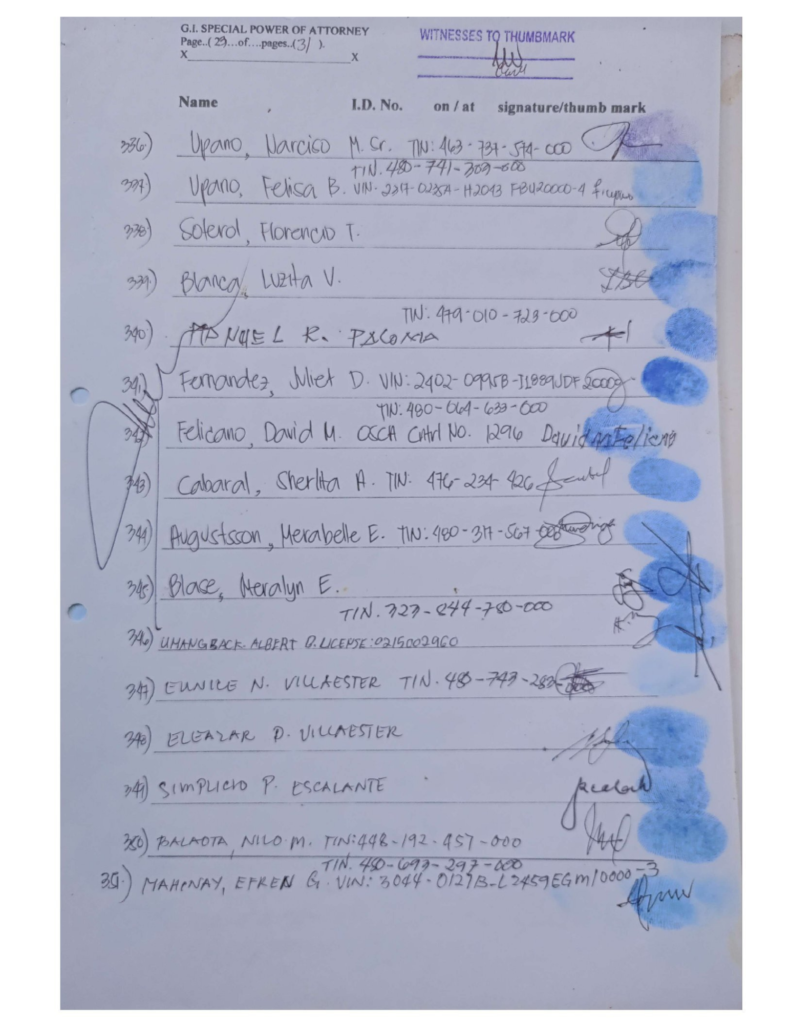 G.I. SPECIAL POWER OF ATTORNEY
Page..( 29)...of....pages..(31 ).
X X
WITNESSES TO THUMBMARK
Name I.D. No. on / at signature/thumb mark
336) Upano, Narciso M. Sr. TIN: 463-737-574-000
TIN. 480-741-309-000
337) Upano, Felisa B. VIN-2217-0235A-H2043 FBU20000-4
338) Soterol, Florencio T.
339) Blanca, Luzita V.
TIN: 479-010-723-000
340) MANUEL R. PALOMA
341) Fernandez, Juliet D. VIN: 2402-0995B-I1889JDF20009
TIN: 480-064-633-000
342) Felicano, David M. OSCA Cntrl No. 1296 David M Feliciano
343) Cabaral, Sherlita A. TIN: 476-234-926
344) Augustsson, Merabelle E. TIN: 480-317-567-008
345) Blase, Meralyn E.
TIN. 323-844-780-000
346) UMANGBACK ALBERT D. LICENSE: 0215002960
347) EUNICE N. VILLAESTER TIN. 480-743-282-000
348) ELEAZAR D. VILLAESTER
349) SIMPLICIO P. ESCALANTE
350) BALAOTA, NILO M. TIN: 448-192-957-000
TIN. 480-693-297-000
351) MAHINAY, EFREN G. VIN: 3044-0127B-L2459EGM10000-3